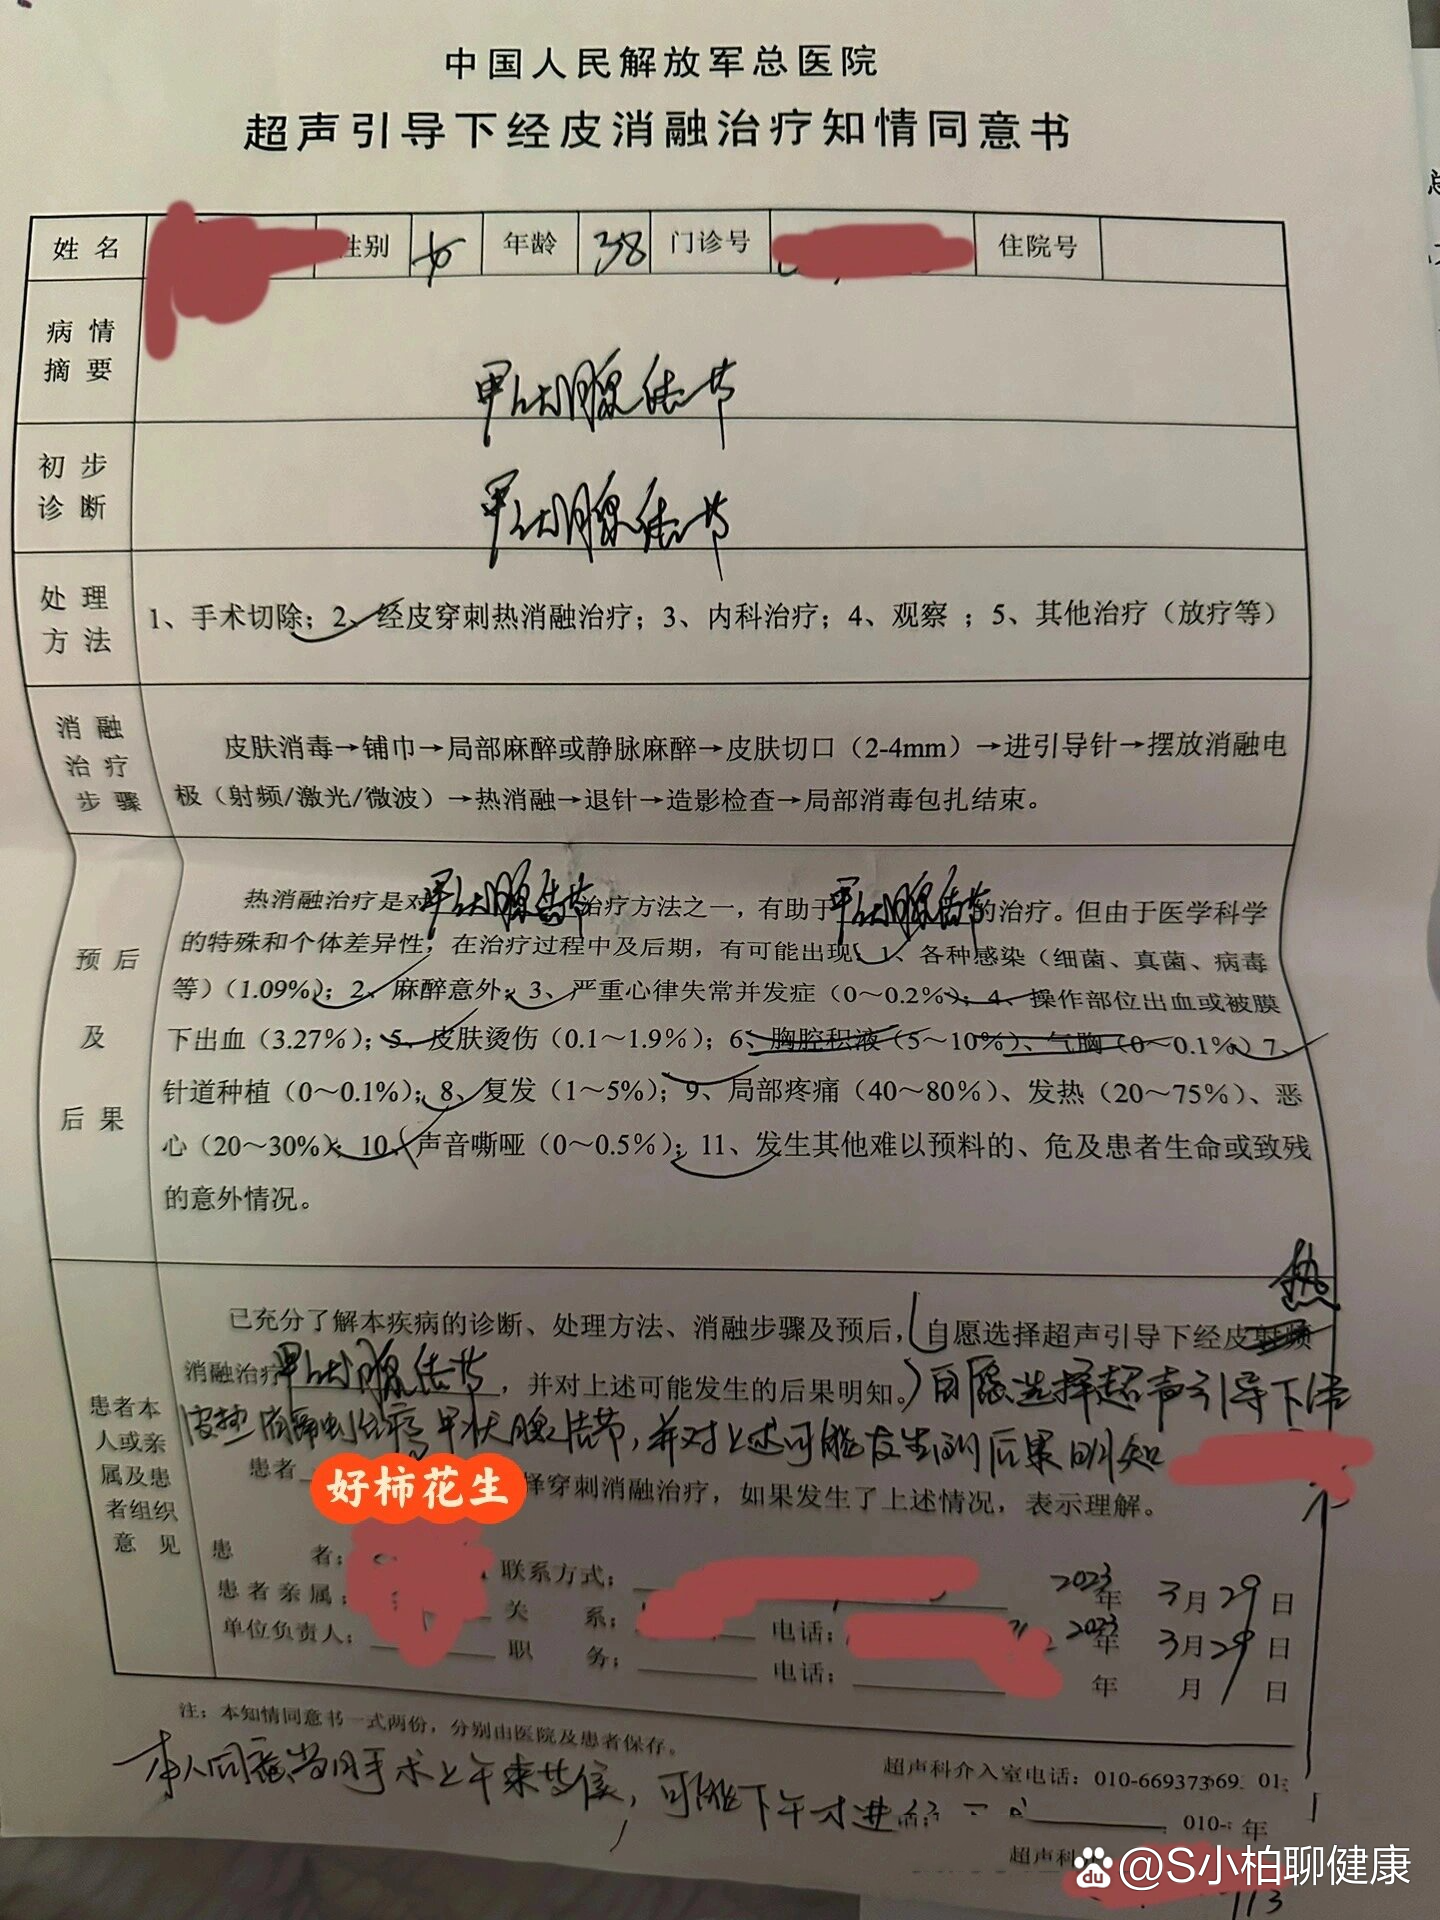 中国人民解放军总医院
超声引导下经皮消融治疗知情同意书
姓名 性别 女 年龄 38 门诊号 住院号
病情摘要 甲状腺结节
初步诊断 甲状腺结节
处理方法 1、手术切除；2、经皮穿刺热消融治疗；3、内科治疗；4、观察 ；5、其他治疗（放疗等）
消融治疗步骤
皮肤消毒→铺巾→局部麻醉或静脉麻醉→皮肤切口（2-4mm）→进引导针→摆放消融电
极（射频/激光/微波）→热消融→退针→造影检查→局部消毒包扎结束。
预后及后果
热消融治疗是对甲状腺结节治疗方法之一，有助于甲状腺结节的治疗。但由于医学科学
的特殊和个体差异性，在治疗过程中及后期，有可能出现：1、各种感染（细菌、真菌、病毒
等）（1.09%）；2、麻醉意外；3、严重心律失常并发症（0～0.2%）；4、操作部位出血或被膜
下出血（3.27%）；5、皮肤烫伤（0.1～1.9%）；6、胸腔积液（5～10%）、气胸（0～0.1%）7、
针道种植（0～0.1%）；8、复发（1～5%）；9、局部疼痛（40～80%）、发热（20～75%）、恶
心（20～30%）；10、声音嘶哑（0～0.5%）；11、发生其他难以预料的、危及患者生命或致残
的意外情况。
患者本人或亲属及患者组织意见
热
已充分了解本疾病的诊断、处理方法、消融步骤及预后，（自愿选择超声引导下经皮射频
消融治疗甲状腺结节，并对上述可能发生的后果明知。）自愿选择超声引导下经
皮热消融治疗甲状腺结节，并对上述可能发生的后果明知
患者 好柿花生 择穿刺消融治疗，如果发生了上述情况，表示理解。
患 者： 联系方式： 2023年 3月29日
患者亲属： 关 系： 电话： 2023年 3月29日
单位负责人： 职 务： 电话： 年 月 日
注：本知情同意书一式两份，分别由医院及患者保存。
超声科介入室电话：010-669373
本人同意当日手术上午来等候，可能下午才进行
010- 年
超声科
@S小柏聊健康